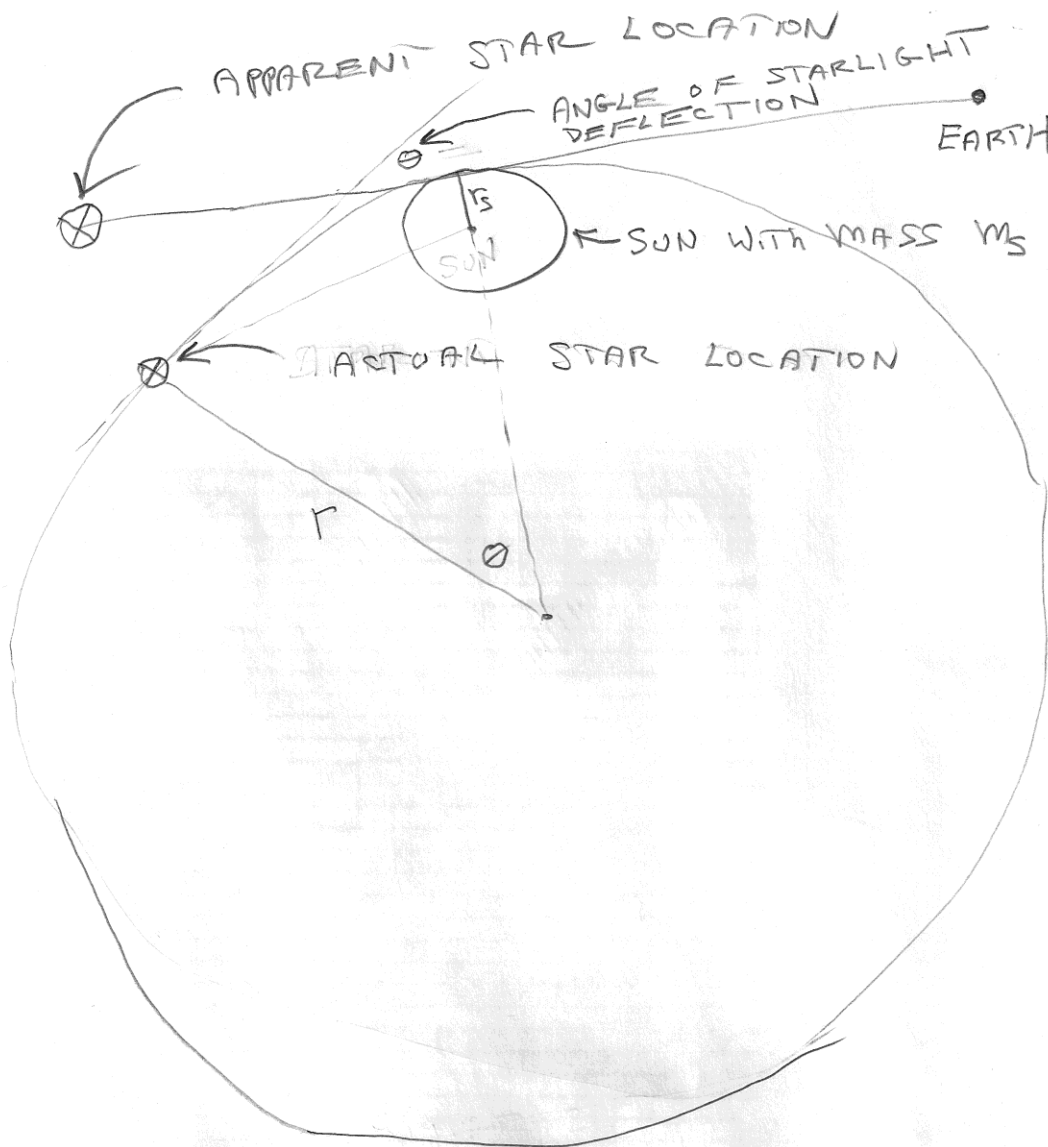 APPARENT STAR LOCATION
ANGLE OF STARLIGHT
DEFLECTION
θ
EARTH
rs
SUN
SUN WITH MASS ms
ACTUAL STAR LOCATION
r
θ